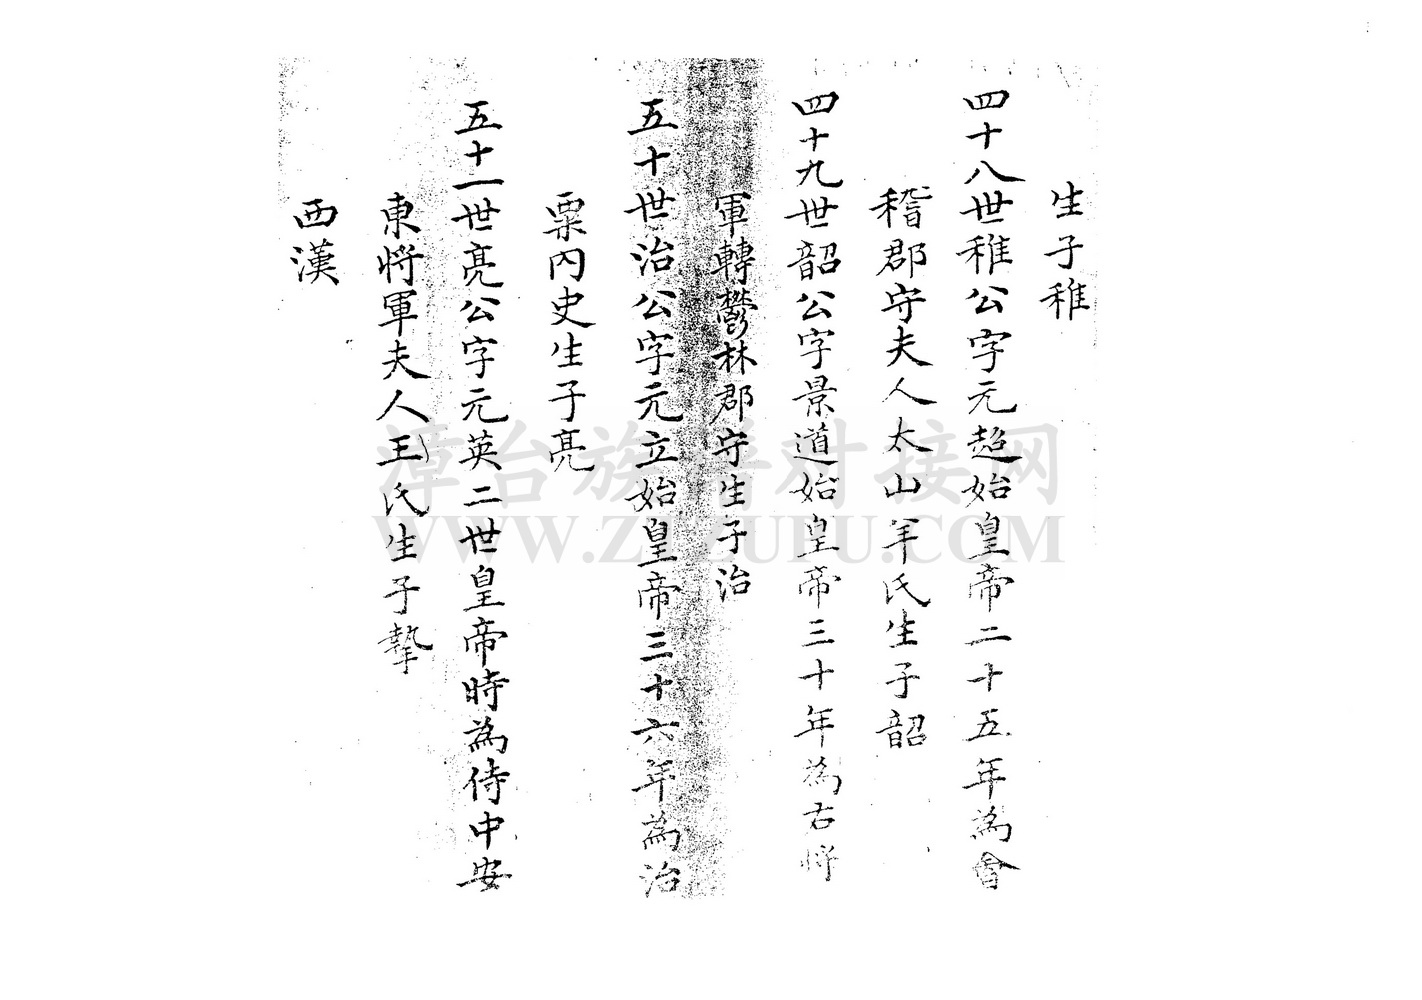 生子稚
四十八世稚公字元超始皇帝二十五年為會
稽郡守夫人太山羊氏生子韶
四十九世韶公字景道始皇帝三十年為右將
軍轉鬱林郡守生子治
五十世治公字元立始皇帝三十六年為治
粟內史生子亮
五十一世亮公字元英二世皇帝時為侍中安
東將軍夫人王氏生子摯
西漢
漳台族谱对接网
WWW.ZTZUPU.COM